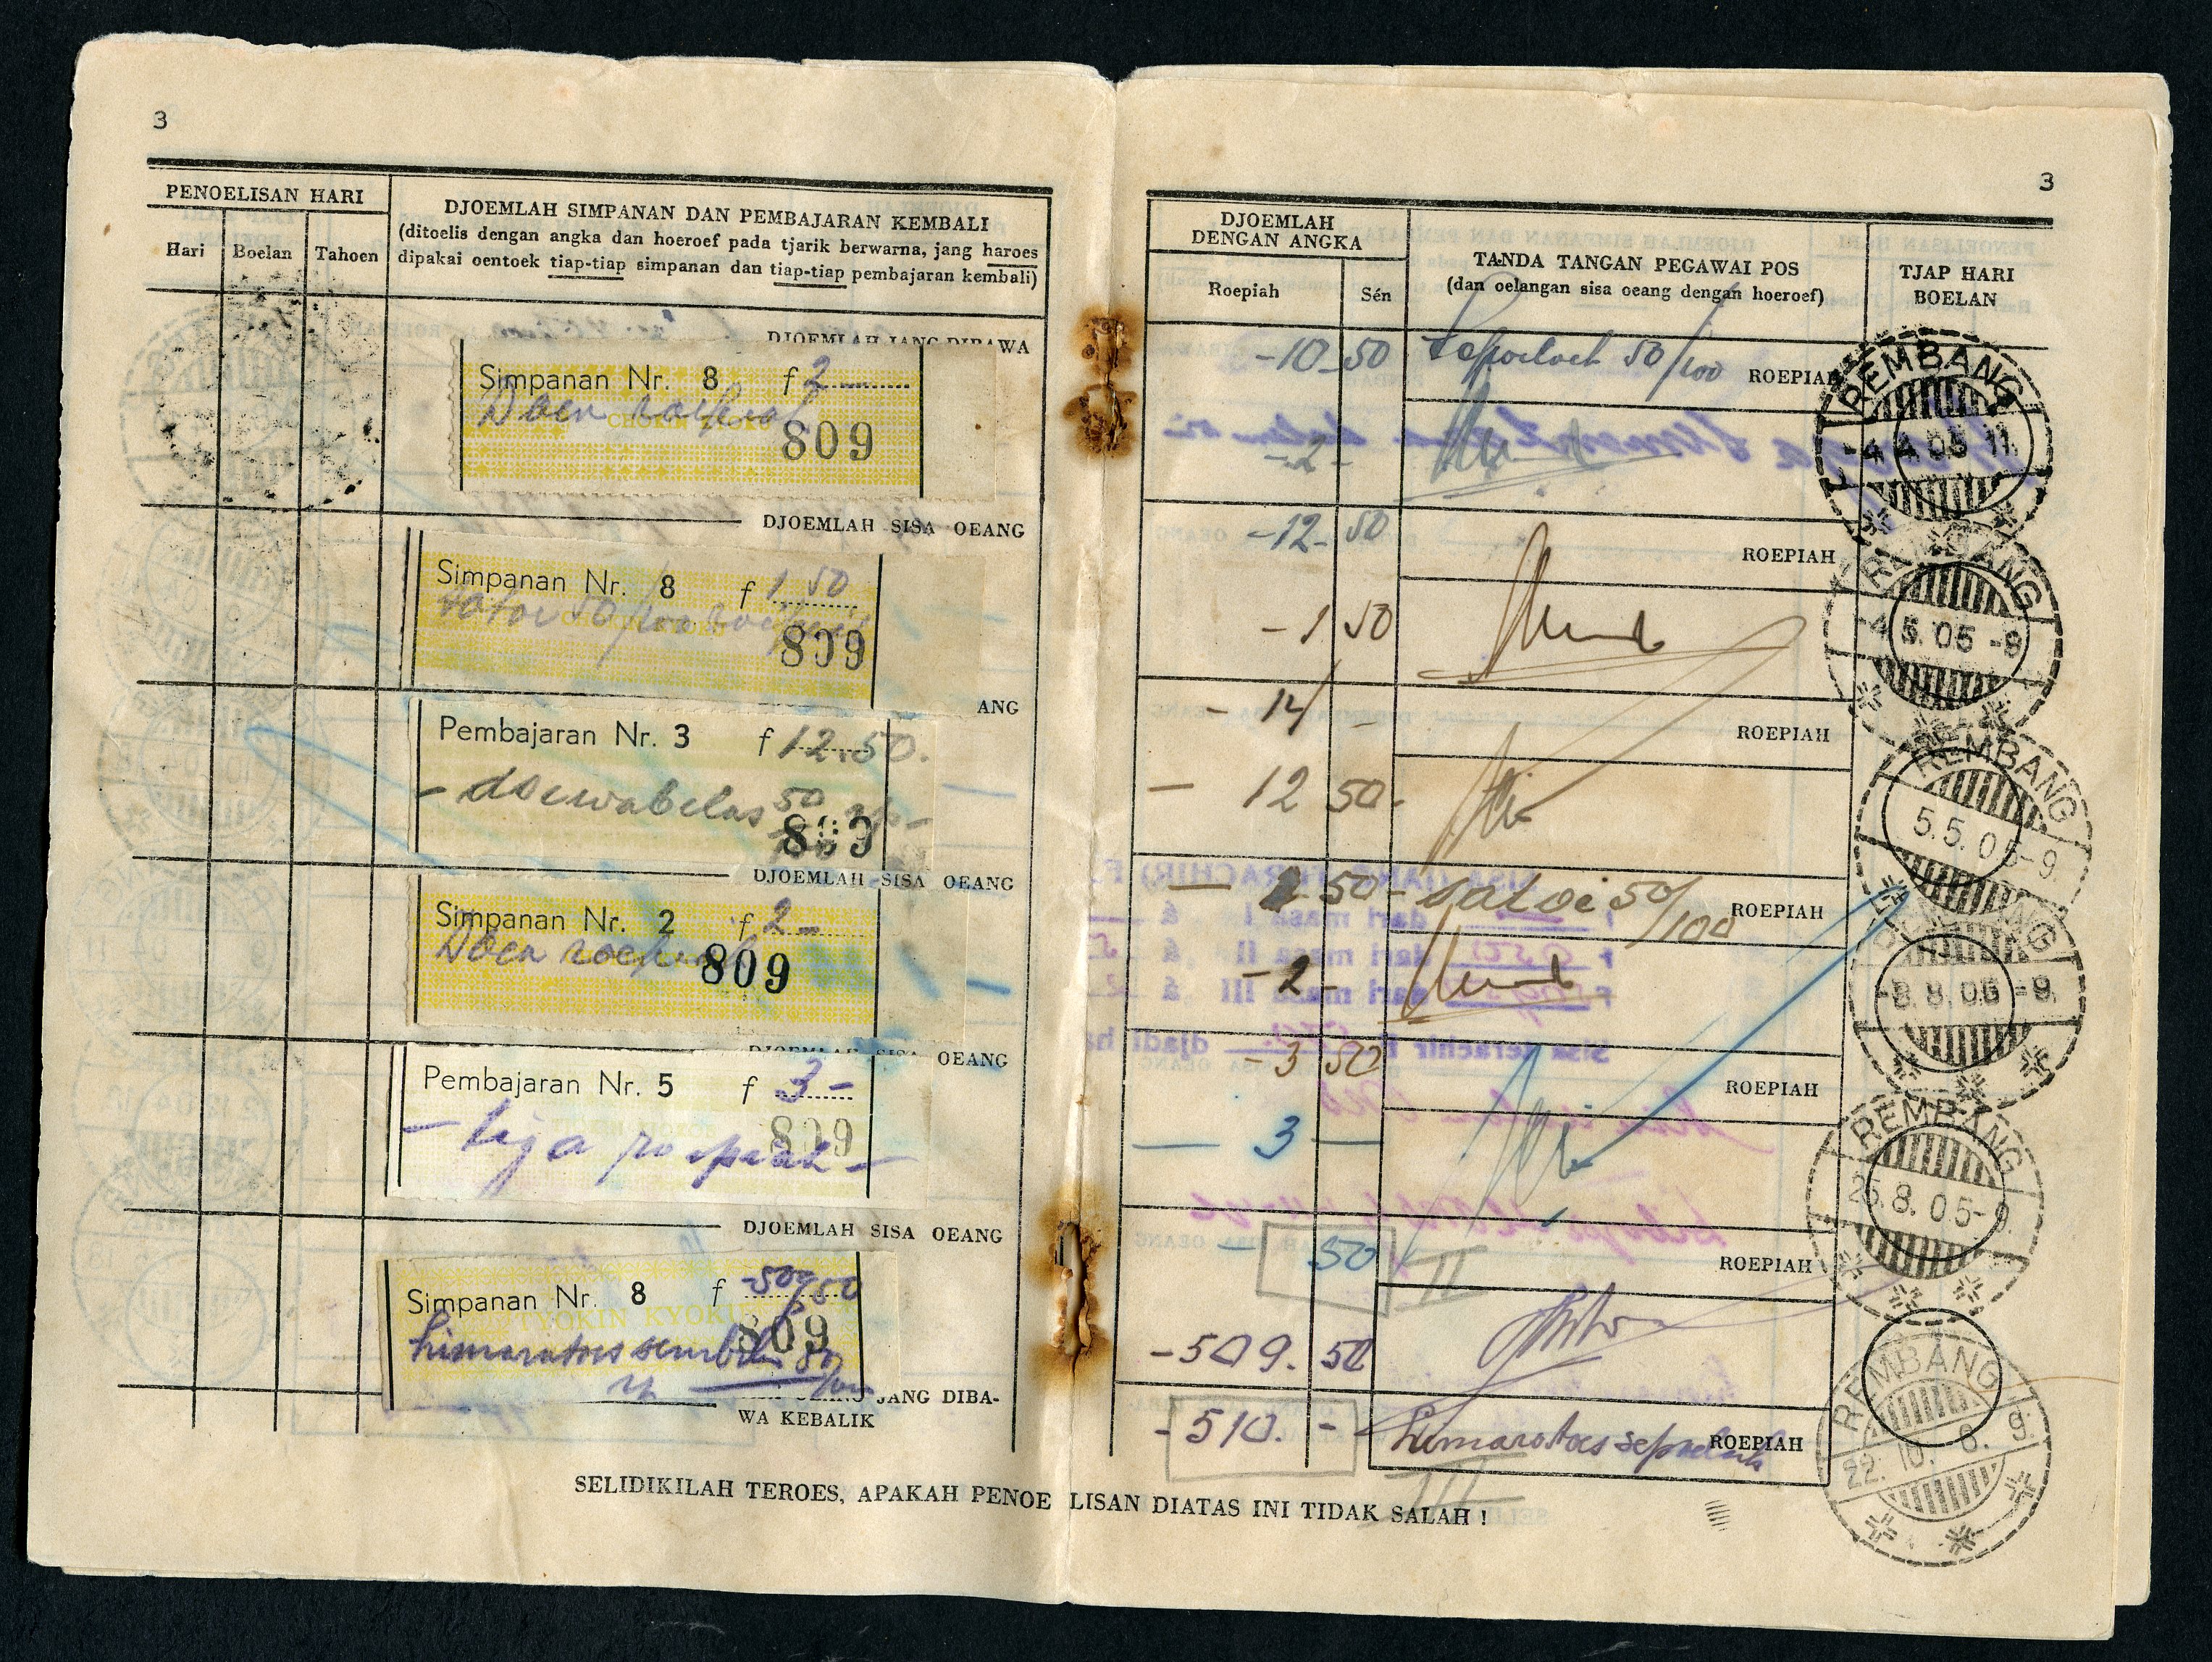 3
PENOELISAN HARI
Hari Boelan Tahoen
DJOEMLAH SIMPANAN DAN PEMBAJARAN KEMBALI
(ditoelis dengan angka dan hoeroef pada tjarik berwarna, jang haroes
dipakai oentoek tiap-tiap simpanan dan tiap-tiap pembajaran kembali)
DJOEMLAH JANG DIBAWA
Simpanan Nr. 8 f 2.—
Doea roepiah
809
DJOEMLAH SISA OEANG
Simpanan Nr. 8 f 1 50
satoe 50/100 roepiah
809
ANG
Pembajaran Nr. 3 f 12.50.
- doewabelas 50
809
DJOEMLAH SISA OEANG
Simpanan Nr. 2 f 2 -
Doea roepiah
809
DJOEMLAH SISA OEANG
Pembajaran Nr. 5 f 3 -
- tiga roepiah -
809
DJOEMLAH SISA OEANG
Simpanan Nr. 8 f 509 50
TYOKIN KYOKU
809
limaratoes sembilan 50/100
JANG DIBA-
WA KEBALIK
3
DJOEMLAH
DENGAN ANGKA
Roepiah Sén
TANDA TANGAN PEGAWAI POS
(dan oelangan sisa oeang dengan hoeroef)
TJAP HARI
BOELAN
-10 50 Sepoeloeh 50/100 ROEPIAH
-2-
REMBANG
-4.4.05 11.
-12- 50 ROEPIAH
-1 50
REMBANG
-4 5.05 -9
-14 - ROEPIAH
- 12 50-
REMBANG
5.5.05-9.
- 1 50 - satoe 50/100 ROEPIAH
-2-
-8.8.05 -9.
-3 50 ROEPIAH
- 3 -
REMBANG
25.8.05-9.
- 50 II ROEPIAH
-509. 50
-510. - Limaratoes sepoeloeh ROEPIAH
III
REMBANG
22.10. 9.
SELIDIKILAH TEROES, APAKAH PENOELISAN DIATAS INI TIDAK SALAH !